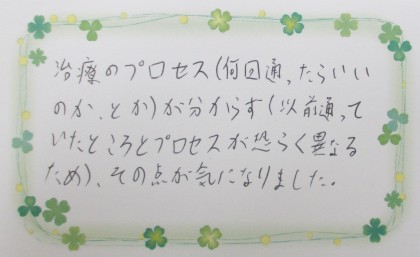 治療のプロセス(何回通ったらいい
のか、とか)が分からず(以前通って
いたところとプロセスが恐らく異なる
ため)、その点が気になりました。